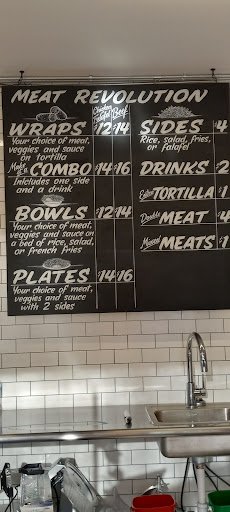 MEAT REVOLUTION
Chicken
Falafel
Beef
WRAPS $12 $14
Your choice of meat,
veggies and sauce
on tortilla
Make it a COMBO $14 $16
Includes one side
and a drink
BOWLS $12 $14
Your choice of meat,
veggies and sauce on
a bed of rice, salad,
or french fries
PLATES $14 $16
Your choice of meat,
veggies and sauce
with 2 sides
SIDES $4
Rice, salad, fries,
or falafel
DRINKS $2
Extra TORTILLA $1
Double MEAT $4
MEATS $1